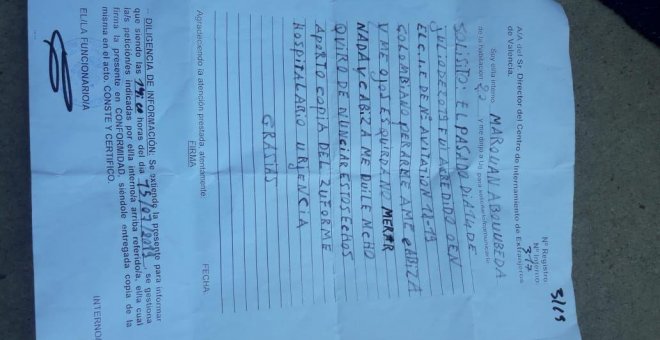 3/19
Nº Registro:
Nº Interno:
317
A/A del Sr. Director del Centro de Internamiento de Extranjeros
de Valencia.
Soy el/la interno MAROUAN ABOUOBEDA
de la habitación 22 y me dirijo a Ud. para
SOLISITO: EL PASADO DIA 14 DE
JULIO DE 2019 FUI AGREDIDO EN
EL C.I.E DE Nº AVITATION 22-19
COLOMBIANO PERARME AME CABIZA
Y ME OJOS ESQUIRDA NO MERAR
NADA Y CABIZA ME DUILE MCHO
QUIRO DENUNCIAR ESTOS ECHOS
APORTO COPIA DEL INFORME
HOSPITALARIO URGENCIA
GRASIAS
Agradeciendo la atención prestada, atentamente
FIRMA
FECHA
- DILIGENCIA DE INFORMACIÓN: Se extiende la presente para informar
que siendo las 19:00 horas del día 15/07/2019, se gestiona
la/s peticion/es indicadas por el/la interno/a arriba referido/a, el/la cual
firma la presente en CONFORMIDAD, siéndole entregada copia de la
misma en el acto. CONSTE Y CERTIFICO.
EL/LA FUNCIONARIO/A
INTERNO